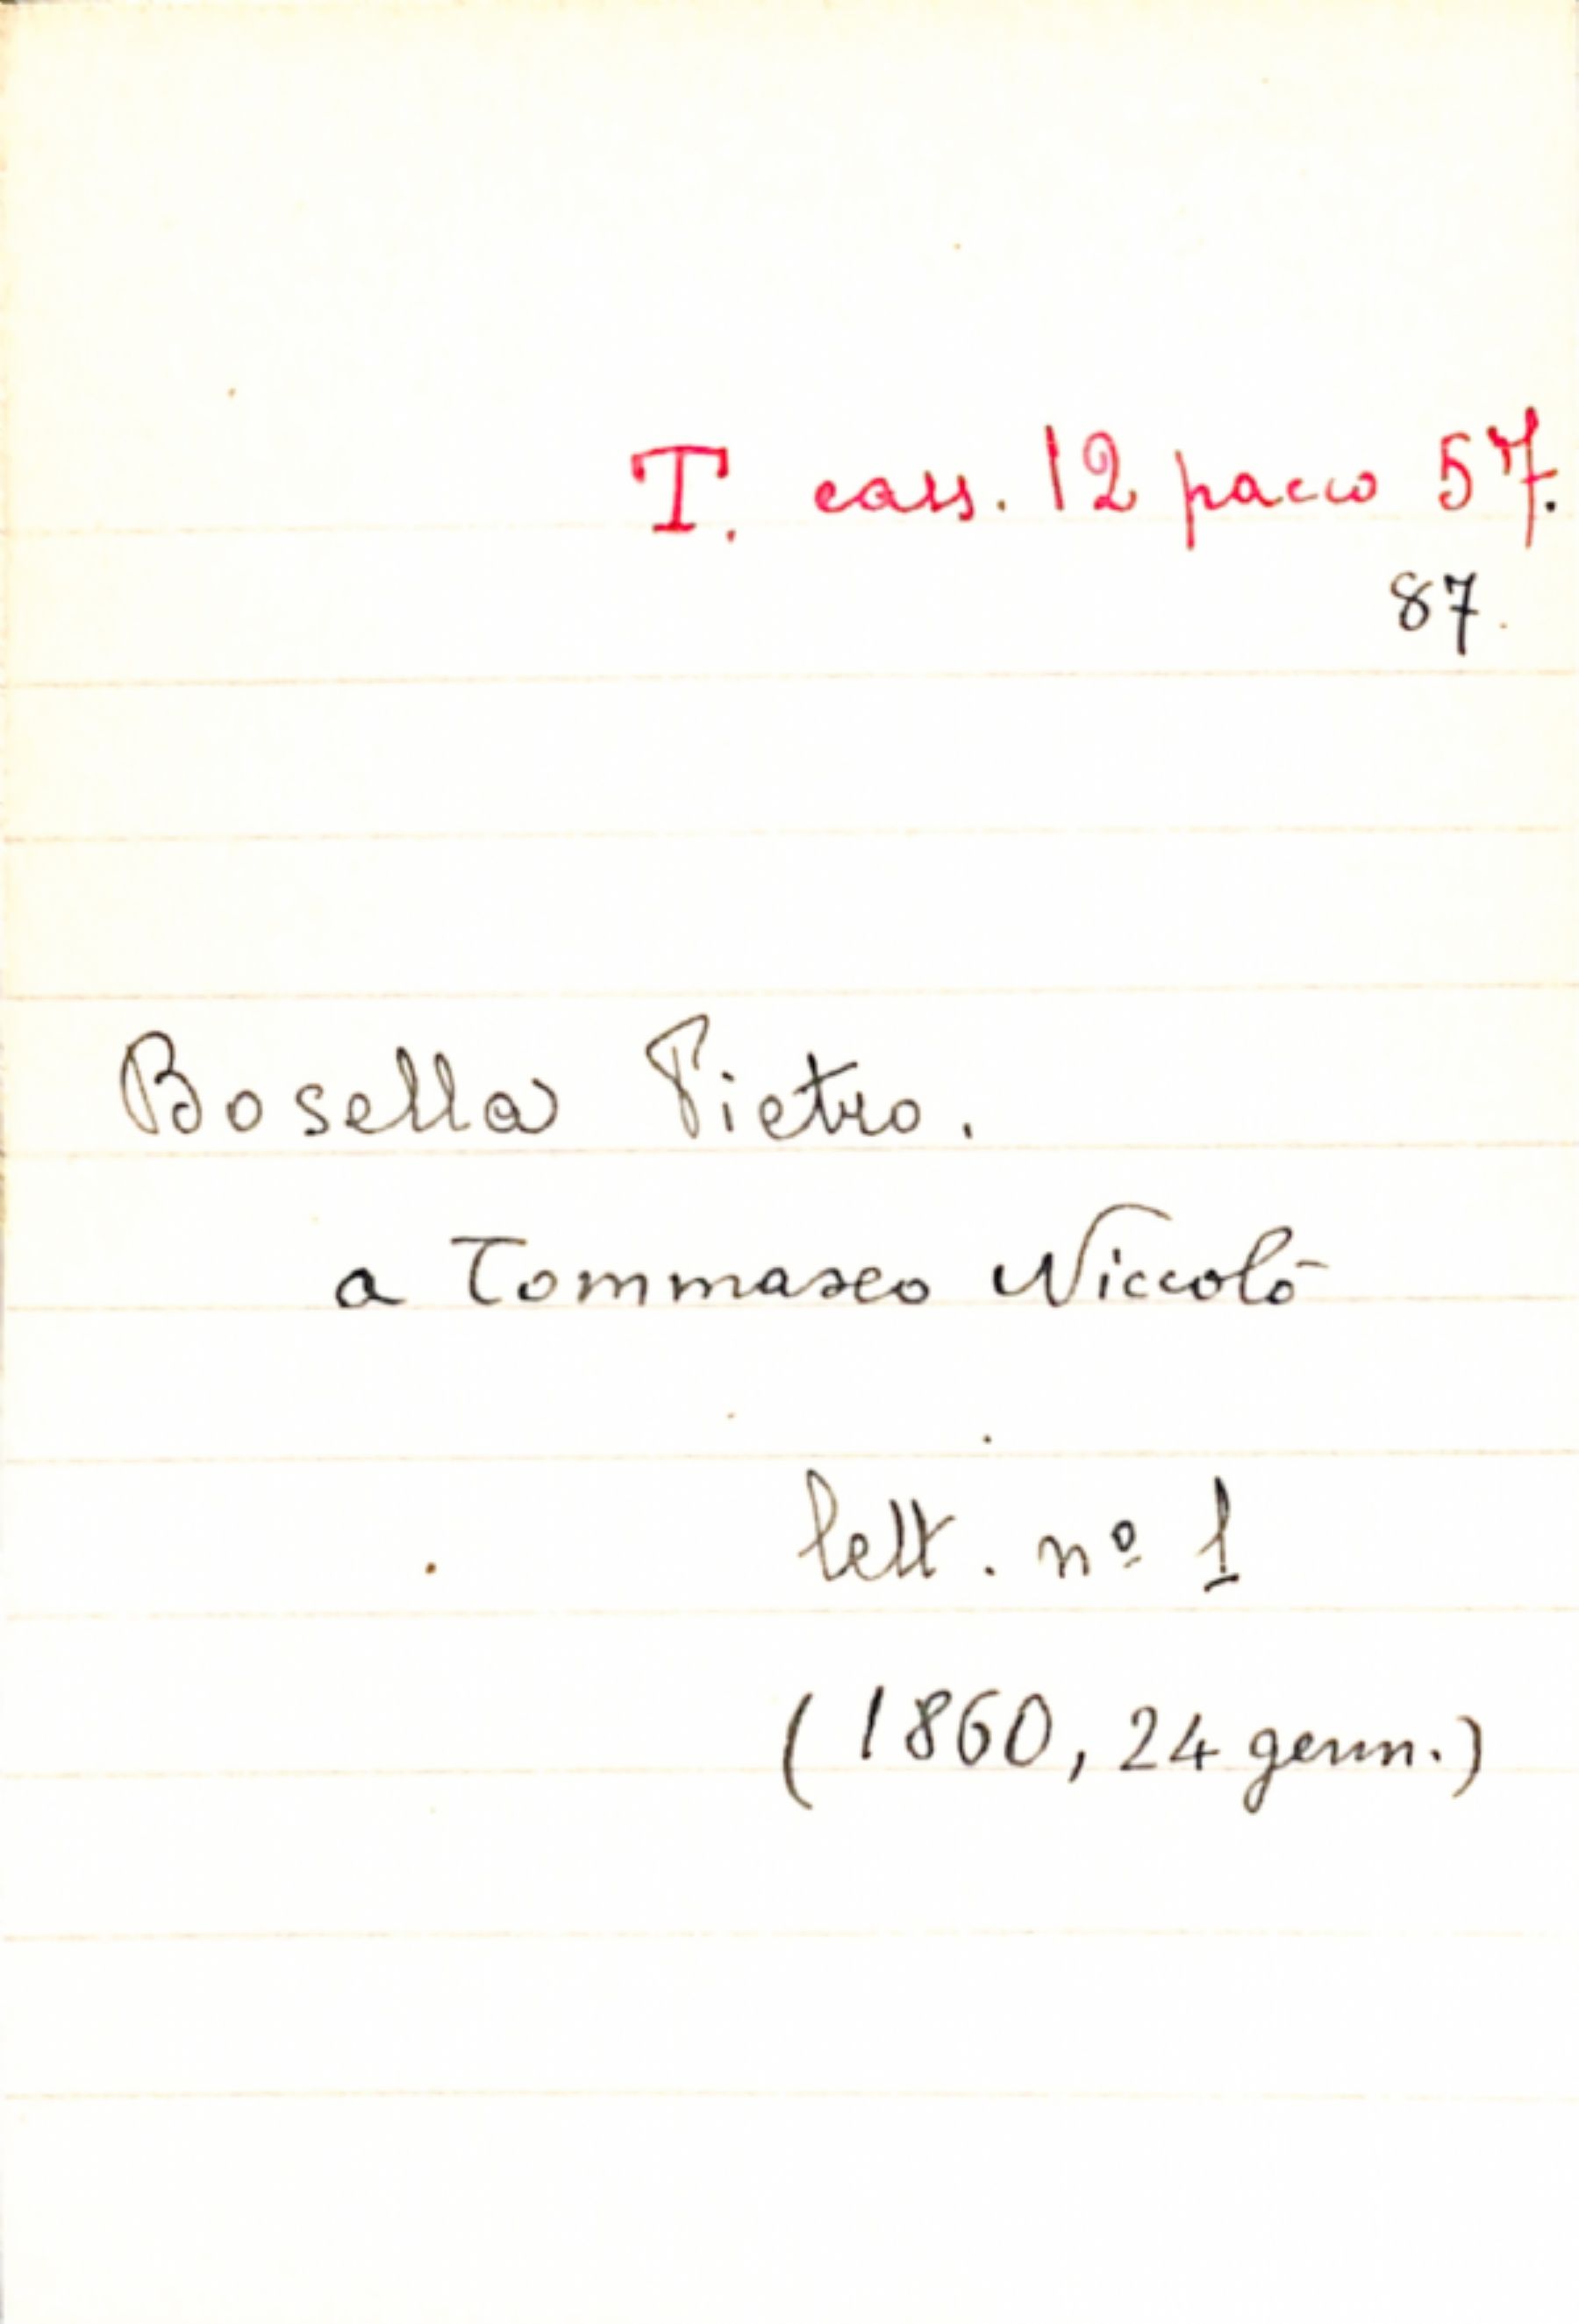 T. cass. 12 pacco 57.
87.
Bosella Pietro.
a Tommaseo Niccolò
lett. nº 1
(1860, 24 genn.)